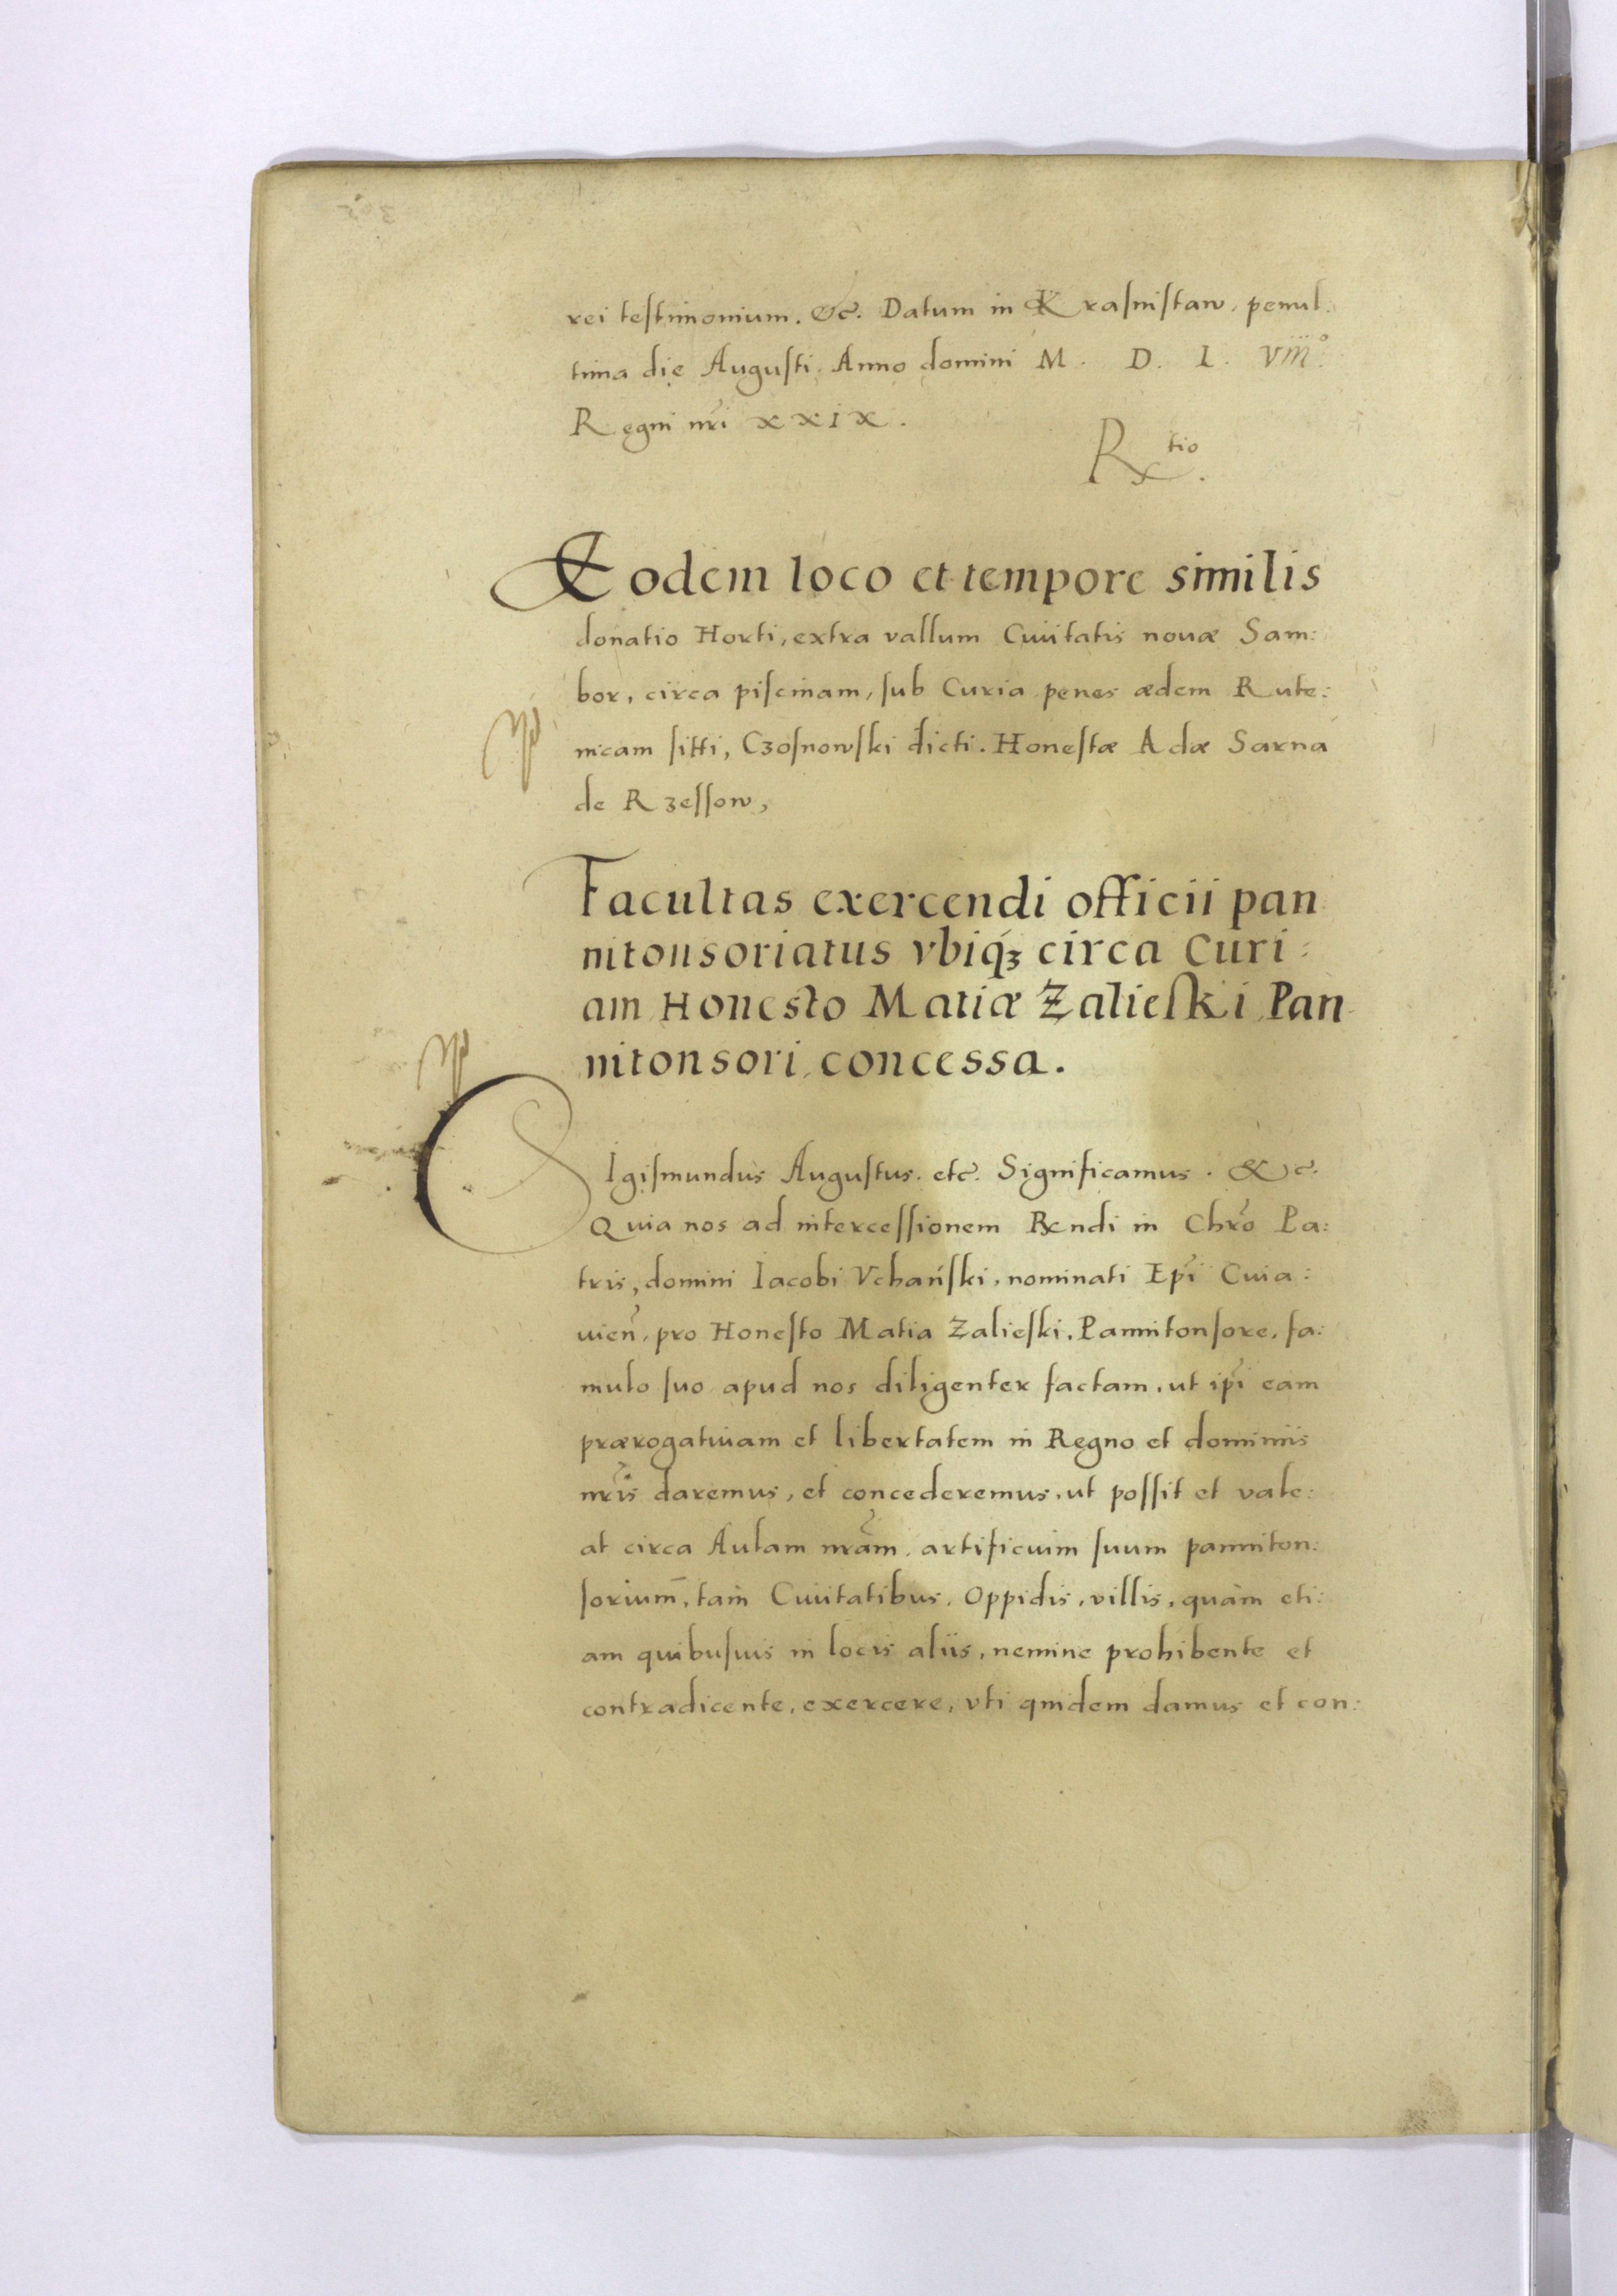 rei testimonium. &c. Datum in Krasnistaw, penul
tima die Augusti. Anno domini M. D. L. Viii°.
Regni nr̃i xxix.
Rtio.
Eodem loco et tempore similis
donatio Horti, extra vallum Ciuitatis nouæ Sam:
bor, circa piscinam, sub Curia penes ædem Rute:
nicam sitti, Czosnowski dicti. Honestæ Adæ Sarna
de Rzessow,
Facultas exercendi officii pan
nitonsoriatus vbiq́ꝫ circa Curi:
am Honesto Matiæ Zalieski Pan
nitonsori concessa.
SIgismundus Augustus. etc. Significamus. &c.
Quia nos ad intercessionem Rendi in Chr̃o Pa:
tris, domini Iacobi Vchański, nominati Ep̃i Cuia:
uien̄, pro Honesto Matia Zalieski, Pannitonsore, fa:
mulo suo apud nos diligenter factam, ut ip̃i eam
prærogatiuam et libertatem in Regno et dominiis
nr̃is daremus, et concederemus, ut possit et vale:
at circa Aulam nr̃am, artificium suum panniton:
sorium, tam̀ Ciuitatibus, Oppidis, villis, quàm eti:
am quibusuis in locis aliis, nemine prohibente et
contradicente, exercere, vti quidem damus et con: